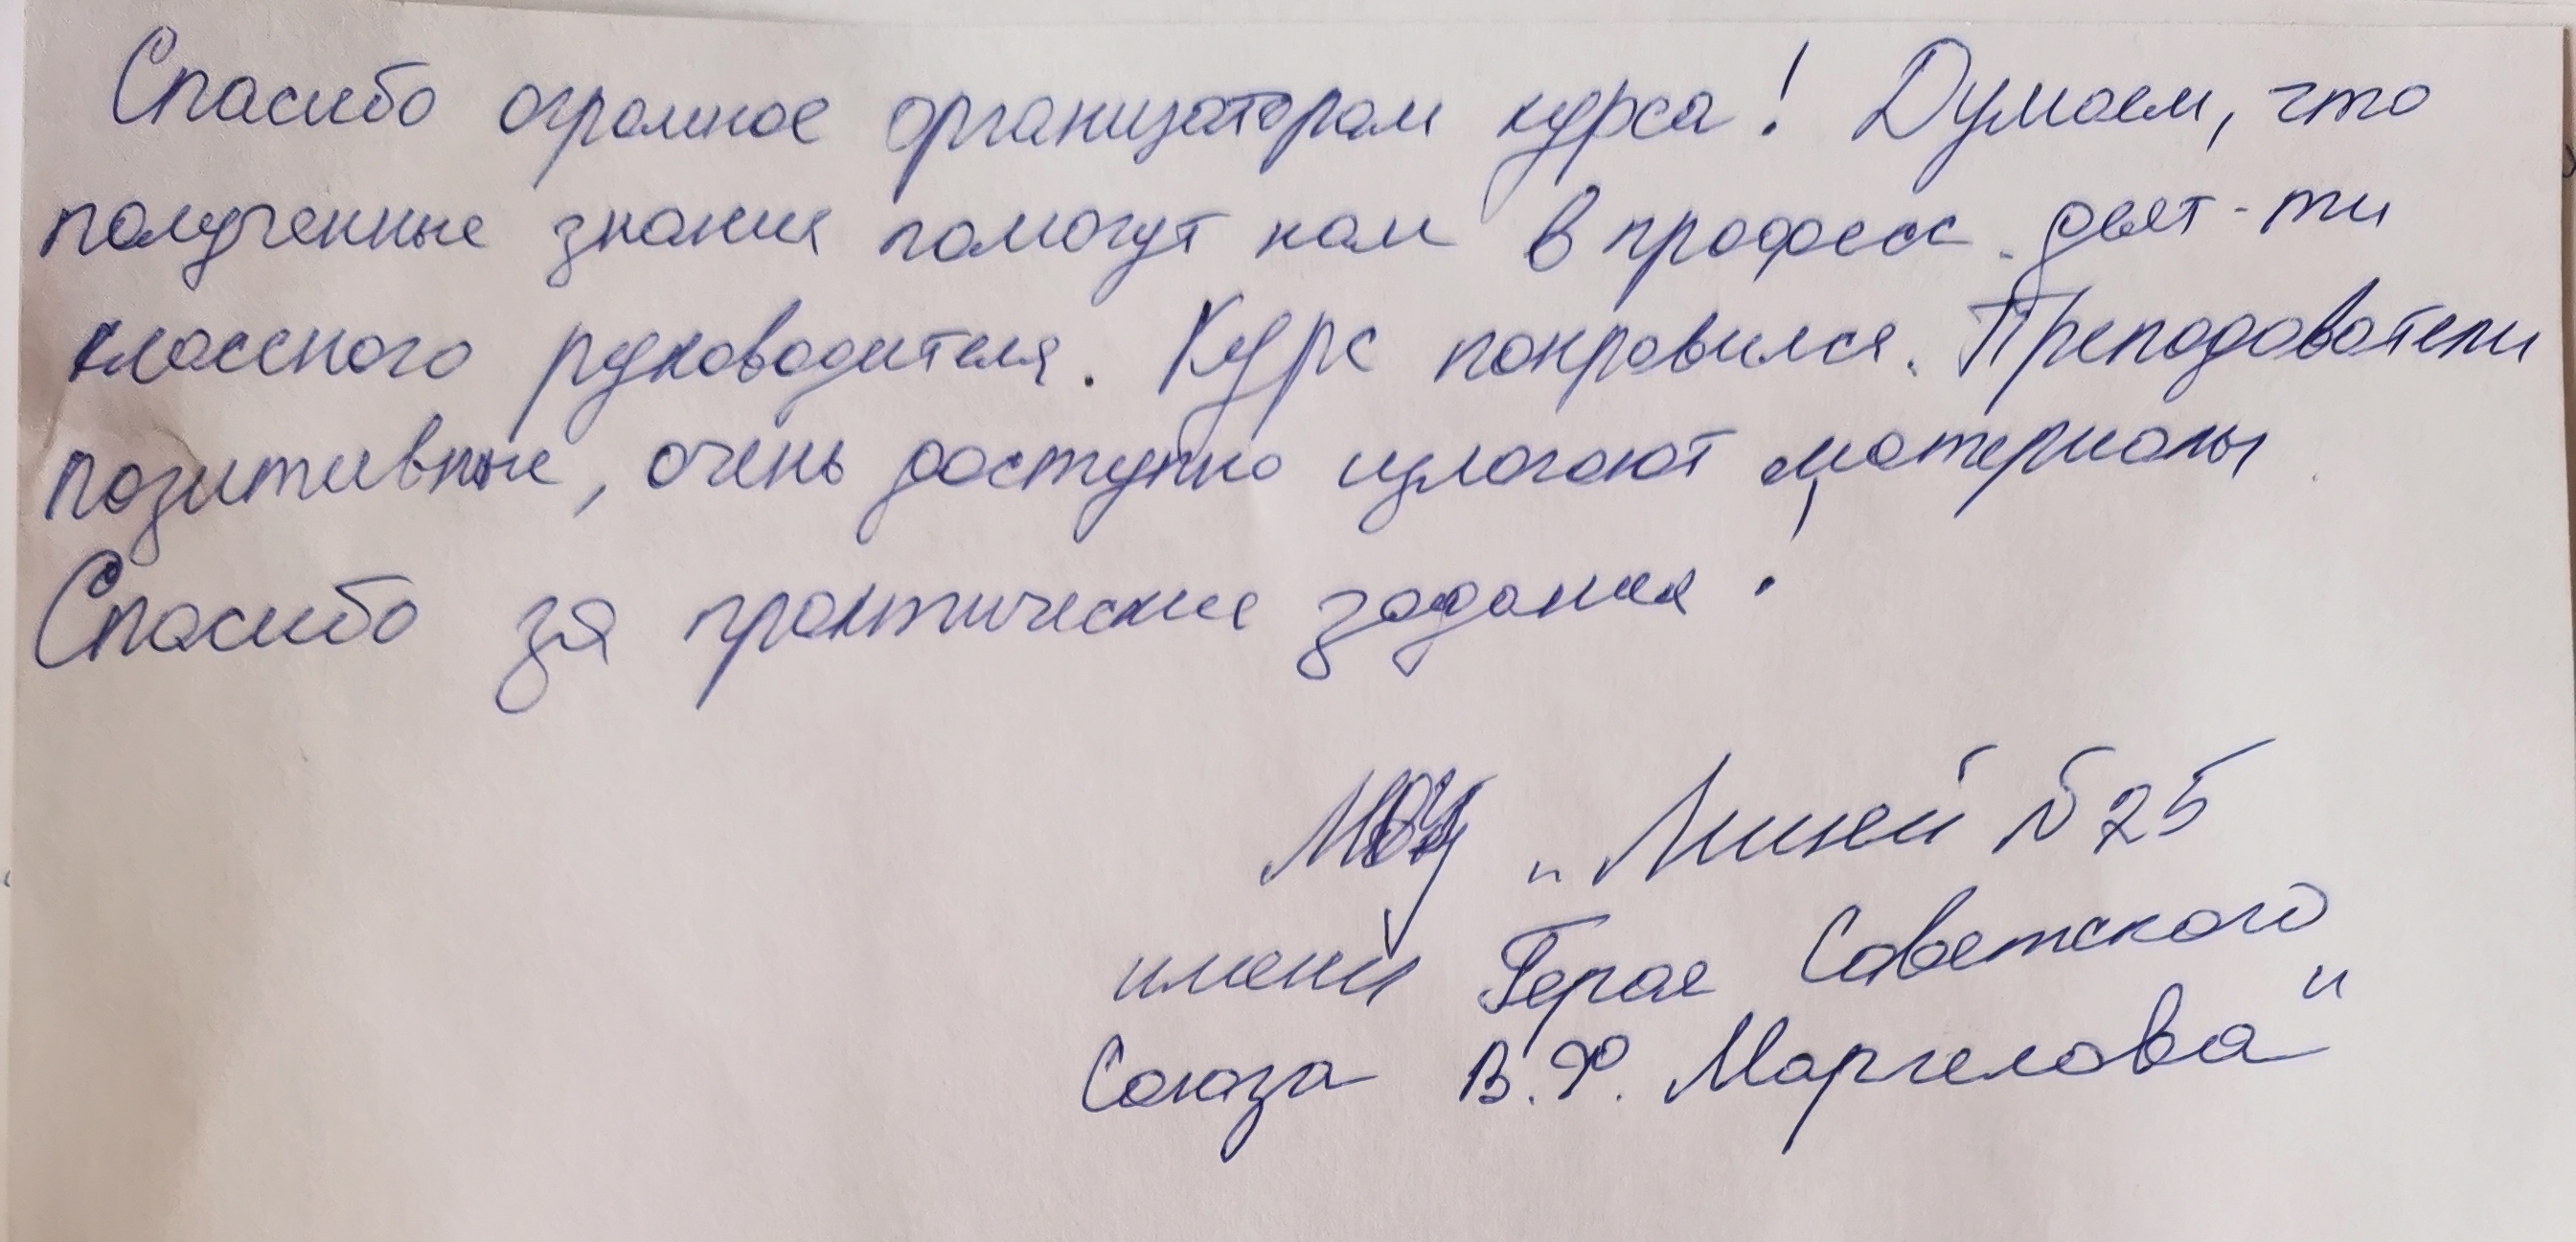 Спасибо огромное организаторам курса! Думаем, что
полученные знания помогут нам в професс. деят-ти
классного руководителя. Курс понравился. Преподаватели
позитивные, очень доступно излагают материалы.
Спасибо за практические задания!
МОУ „Лицей №25
имени Героя Советского
Союза В.Ф. Маргелова"